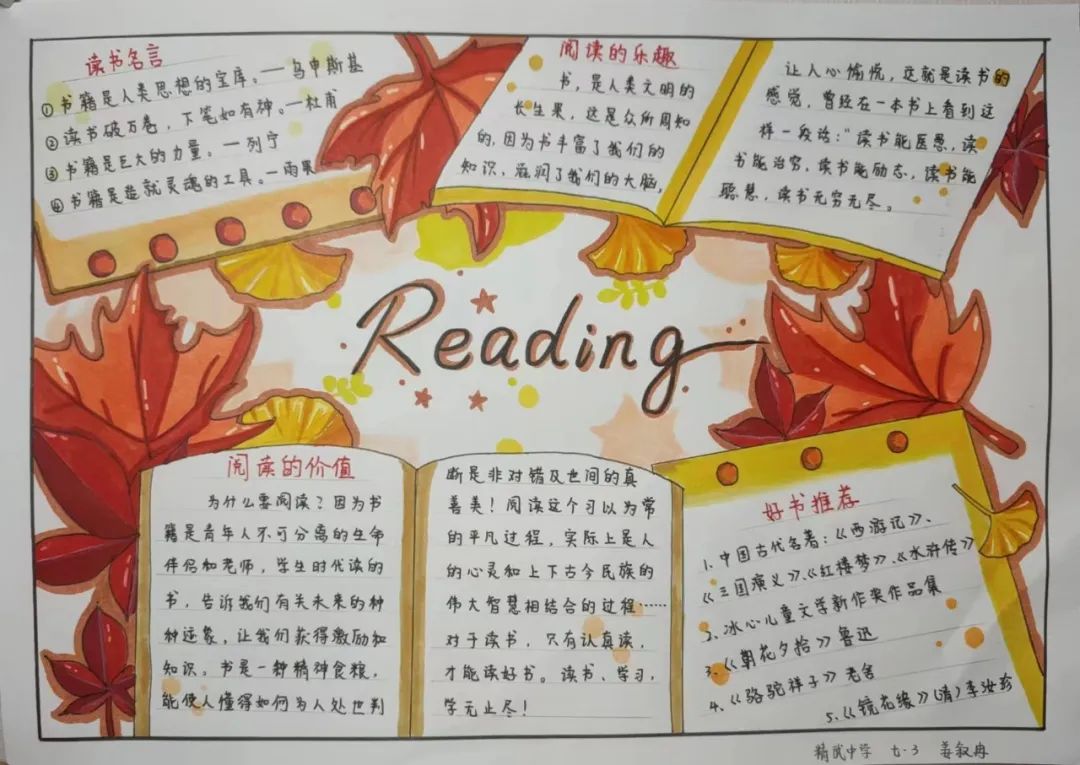 读书名言
①书籍是人类思想的宝库。—乌申斯基
②读书破万卷，下笔如有神。—杜甫
③书籍是巨大的力量。—列宁
④书籍是造就灵魂的工具。—雨果
阅读的乐趣
书，是人类文明的
长生果，这是众所周知
的，因为书丰富了我们的
知识，滋润了我们的大脑，
让人心愉悦，这就是读书的
感觉，曾经在一本书上看到这
样一段话：“读书能医愚，读
书能治穷，读书能励志，读书能
聪慧，读书无穷无尽。
Reading
阅读的价值
为什么要阅读？因为书
籍是青年人不可分离的生命
伴侣和老师，学生时代读的
书，告诉我们有关未来的种
种迹象，让我们获得激励和
知识。书是一种精神食粮，
能使人懂得如何为人处世判
断是非对错及世间的真
善美！阅读这个习以为常
的平凡过程，实际上是人
的心灵和上下古今民族的
伟大智慧相结合的过程……
对于读书，只有认真读，
才能读好书。读书、学习，
学无止尽！
好书推荐
1.中国古代名著：《西游记》、
《三国演义》、《红楼梦》、《水浒传》
2.冰心儿童文学新作奖作品集
3.《朝花夕拾》鲁迅
4.《骆驼祥子》老舍
5.《镜花缘》（清）李汝珍
精武中学 七·3 姜叙冉